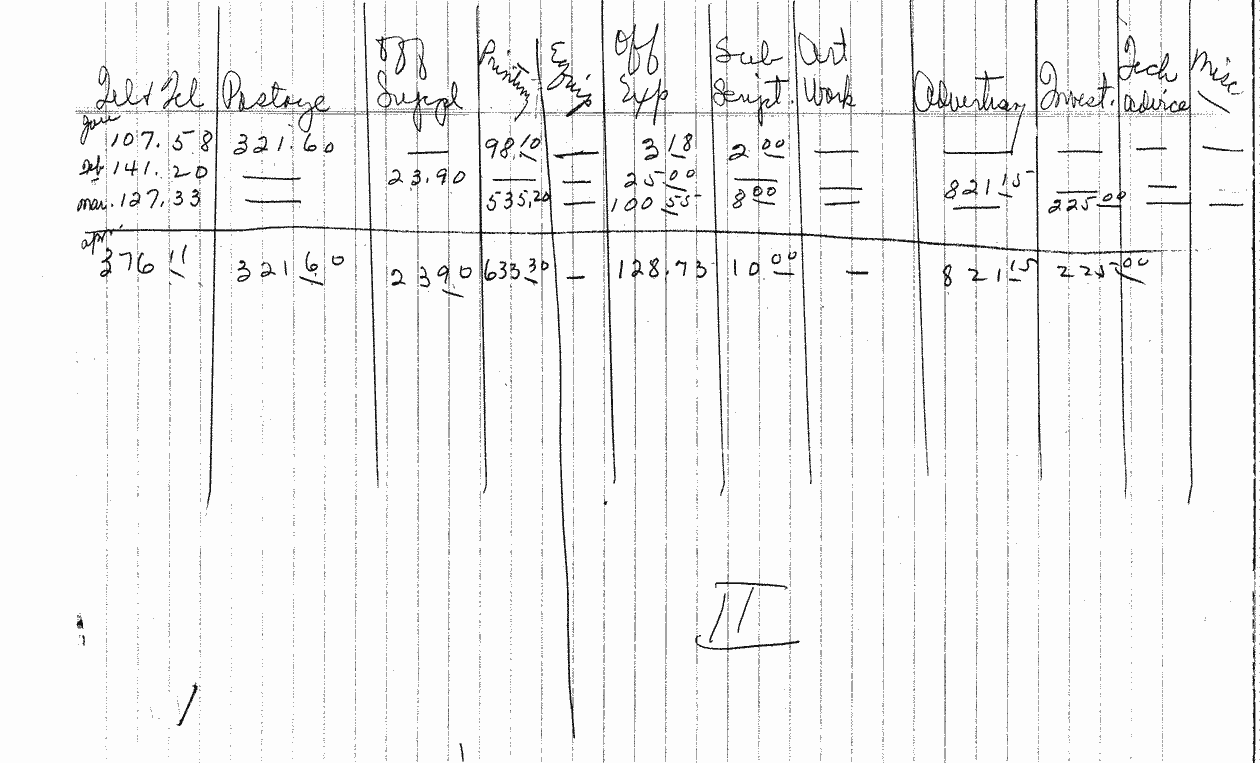 Tel & Tel Postage Off Suppl Printing Equip Off Exp Sub Script. Art Work Advertising Invest. Tech advice Misc
Jan 107.58 321.60 — 98.10 — 3 18 2 00 — — — — —
Feb 141.20 — 23.90 — — 25 00 — — 821 15 — —
Mar. 127.33 — 535.20 — 100 55 8 00 — — 225 00 — —
Apr.
376 11 321 60 23 90 633 30 — 128.73 10 00 — 821 15 225 00
II